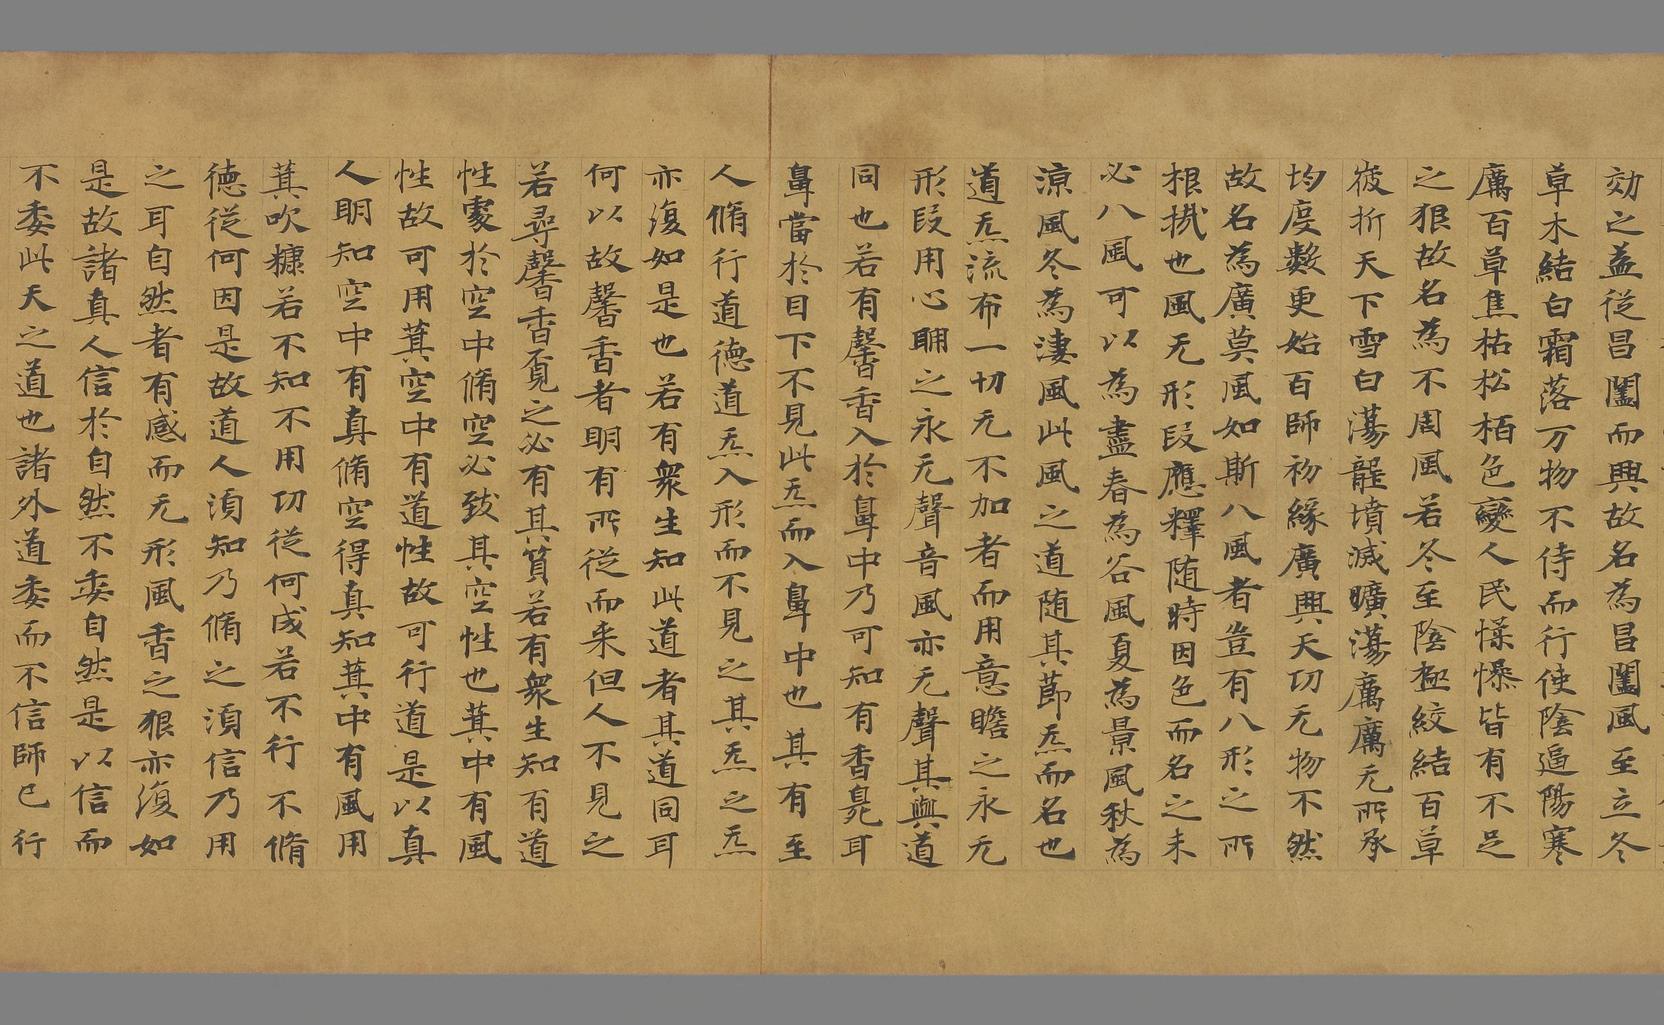 効之盖從昌闔而興故名為昌闔風至立冬
草木結白霜落万物不侍而行使陰逼陽寒
厲百草焦枯松栢色變人民慘慘皆有不足
之狠故名為不周風若冬至陰極絞結百草
彼折天下雪白蕩龍墳滅曠蕩厲厲无所承
均度數更始百師初緣廣興天功无物不然
故名為廣莫風如斯八風者豈有八形之所
根撓也風无形段應釋随時因色而名之未
必八風可以為盡春為谷風夏為景風秋為
涼風冬為淒風此風之道随其節炁而名也
道炁流布一切无不加者而用意瞻之永无
形段用心聃之永无聲音風亦无聲其與道
同也若有馨香入於鼻中乃可知有香臭耳
鼻當於目下不見此炁而入鼻中也其有至
人脩行道德道炁入形而不見之其炁之炁
亦復如是也若有衆生知此道者其道同耳
何以故馨香者明有所從而来但人不見之
若尋馨香香覔之必有其質若有衆生知有道
性處於空中脩空必致其空性也萁中有風
性故可用萁空中有道性故可行道是以真
人明知空中有真脩空得真知萁中有風用
萁吹糠若不知不用功從何成若不行不脩
德從何因是故道人湏知乃脩之湏信乃用
之耳自然者有感而无形風香之狠亦復如
是故諸真人信於自然不委自然是以信而
不委此天之道也諸外道委而不信師已行